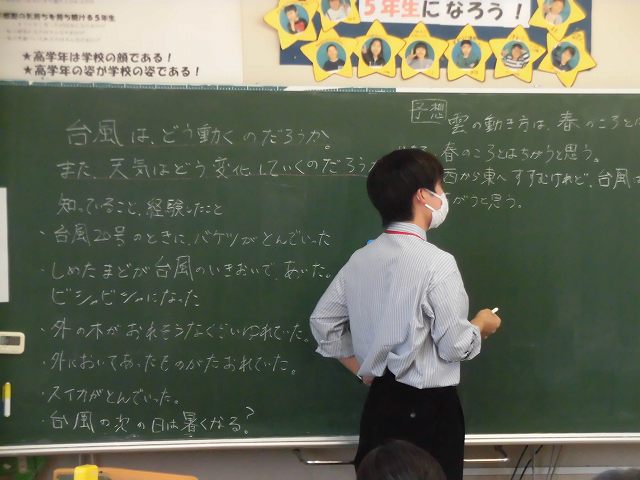 ５年生になろう！
★高学年は学校の顔である！
★高学年の姿が学校の姿である！
台風は、どう動くのだろうか。
また、天気はどう変化していくのだろう
知っていること、経験したこと
・台風20号のときに、バケツがとんでいった
・しめたまどが台風のいきおいで、あいた。
ビショビショになった
・外の木がおれそうなくらいゆれていた。
・外においてあったものがたおれていた。
・スイカがとんでいった。
・台風の次の日は暑くなる？
予想
雲の動き方は、春のころと
春のころとはちがうと思う。
西から東へすすむけれど、台風は
がうと思う。